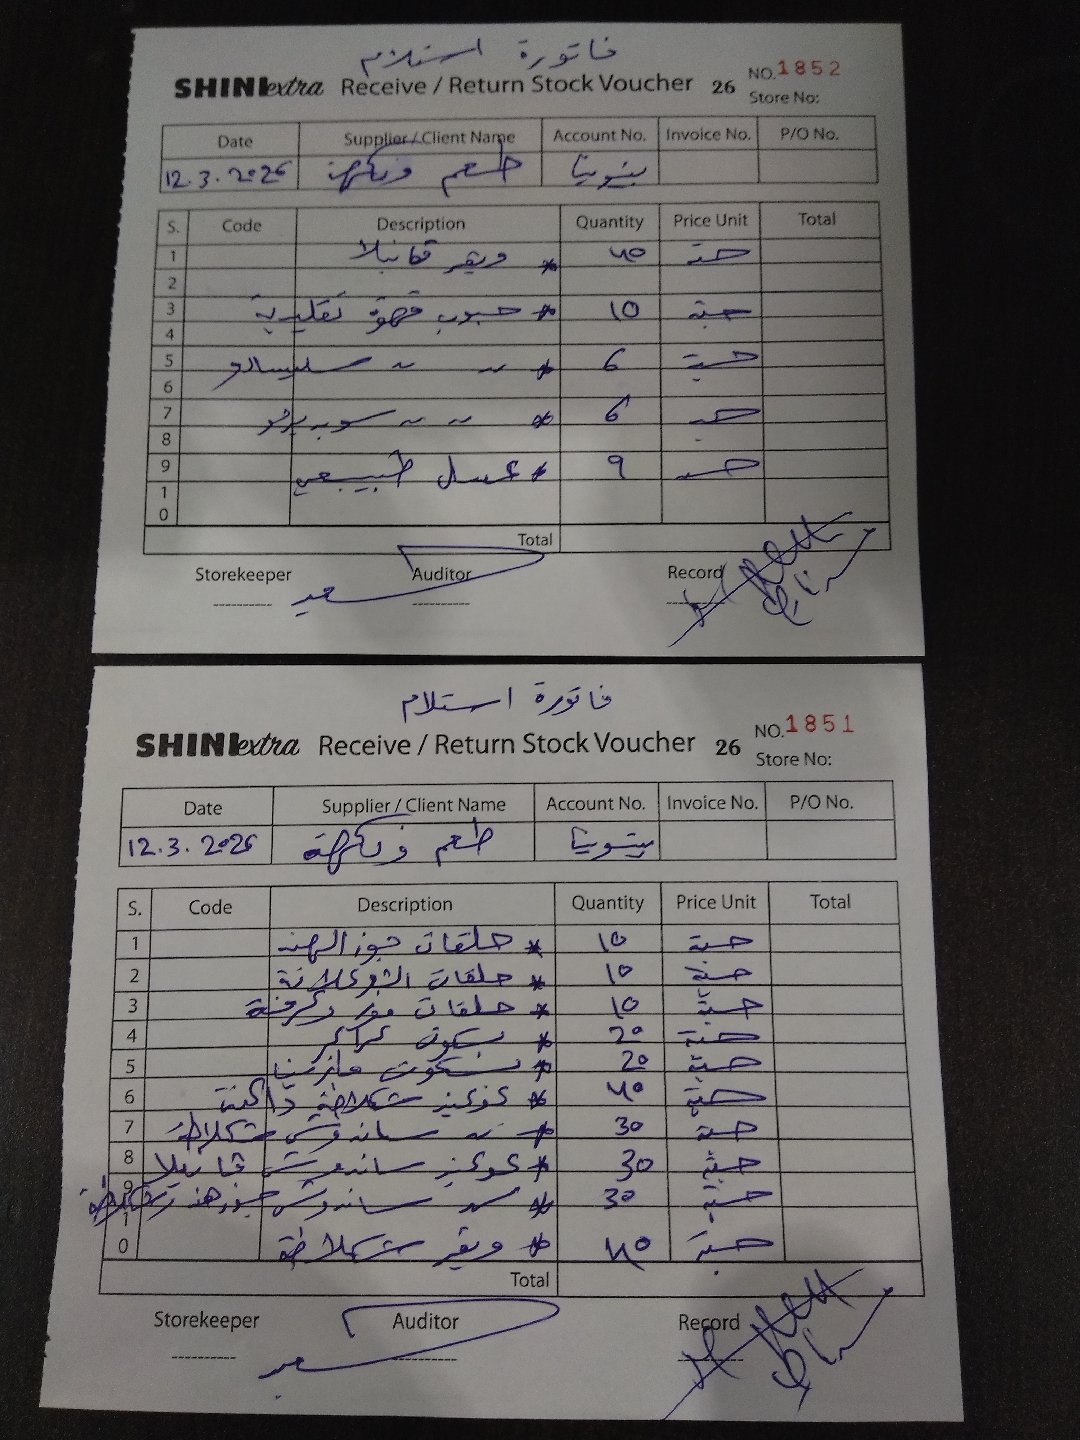 فاتورة استلام
SHINIextra Receive / Return Stock Voucher 26 NO.1852
Store No:
Date Supplier / Client Name Account No. Invoice No. P/O No.
12.3.2026 طعم ونكهة
S. Code Description Quantity Price Unit Total
1 * ويفر فانيلا 40 حبة
2
3 * حبوب قهوة تقليدية 10 حبة
4
5 * " " 6 حبة
6
7 * " " 6 حبة
8
9 * عسل طبيعي 9 حبة
10
Total
Storekeeper Auditor Record
سعيد
فاتورة استلام
SHINIextra Receive / Return Stock Voucher 26 NO.1851
Store No:
Date Supplier / Client Name Account No. Invoice No. P/O No.
12.3.2026 طعم ونكهة
S. Code Description Quantity Price Unit Total
1 * حلقات جوز الهند 10 حبة
2 * حلقات الشوكلاتة 10 حبة
3 * حلقات موز وقرفة 10 حبة
4 * بسكوت كراكر 20 حبة
5 * بسكوت 20 حبة
6 * كوكيز شكلاطة داكنة 40 حبة
7 * " ساندوش شكلاطة 30 حبة
8 * كوكيز ساندوش فانيلا 30 حبة
9 * " ساندوش جوز هند 30 حبة
10 * ويفر شكلاطة 40 حبة
Total
Storekeeper Auditor Record
سعيد